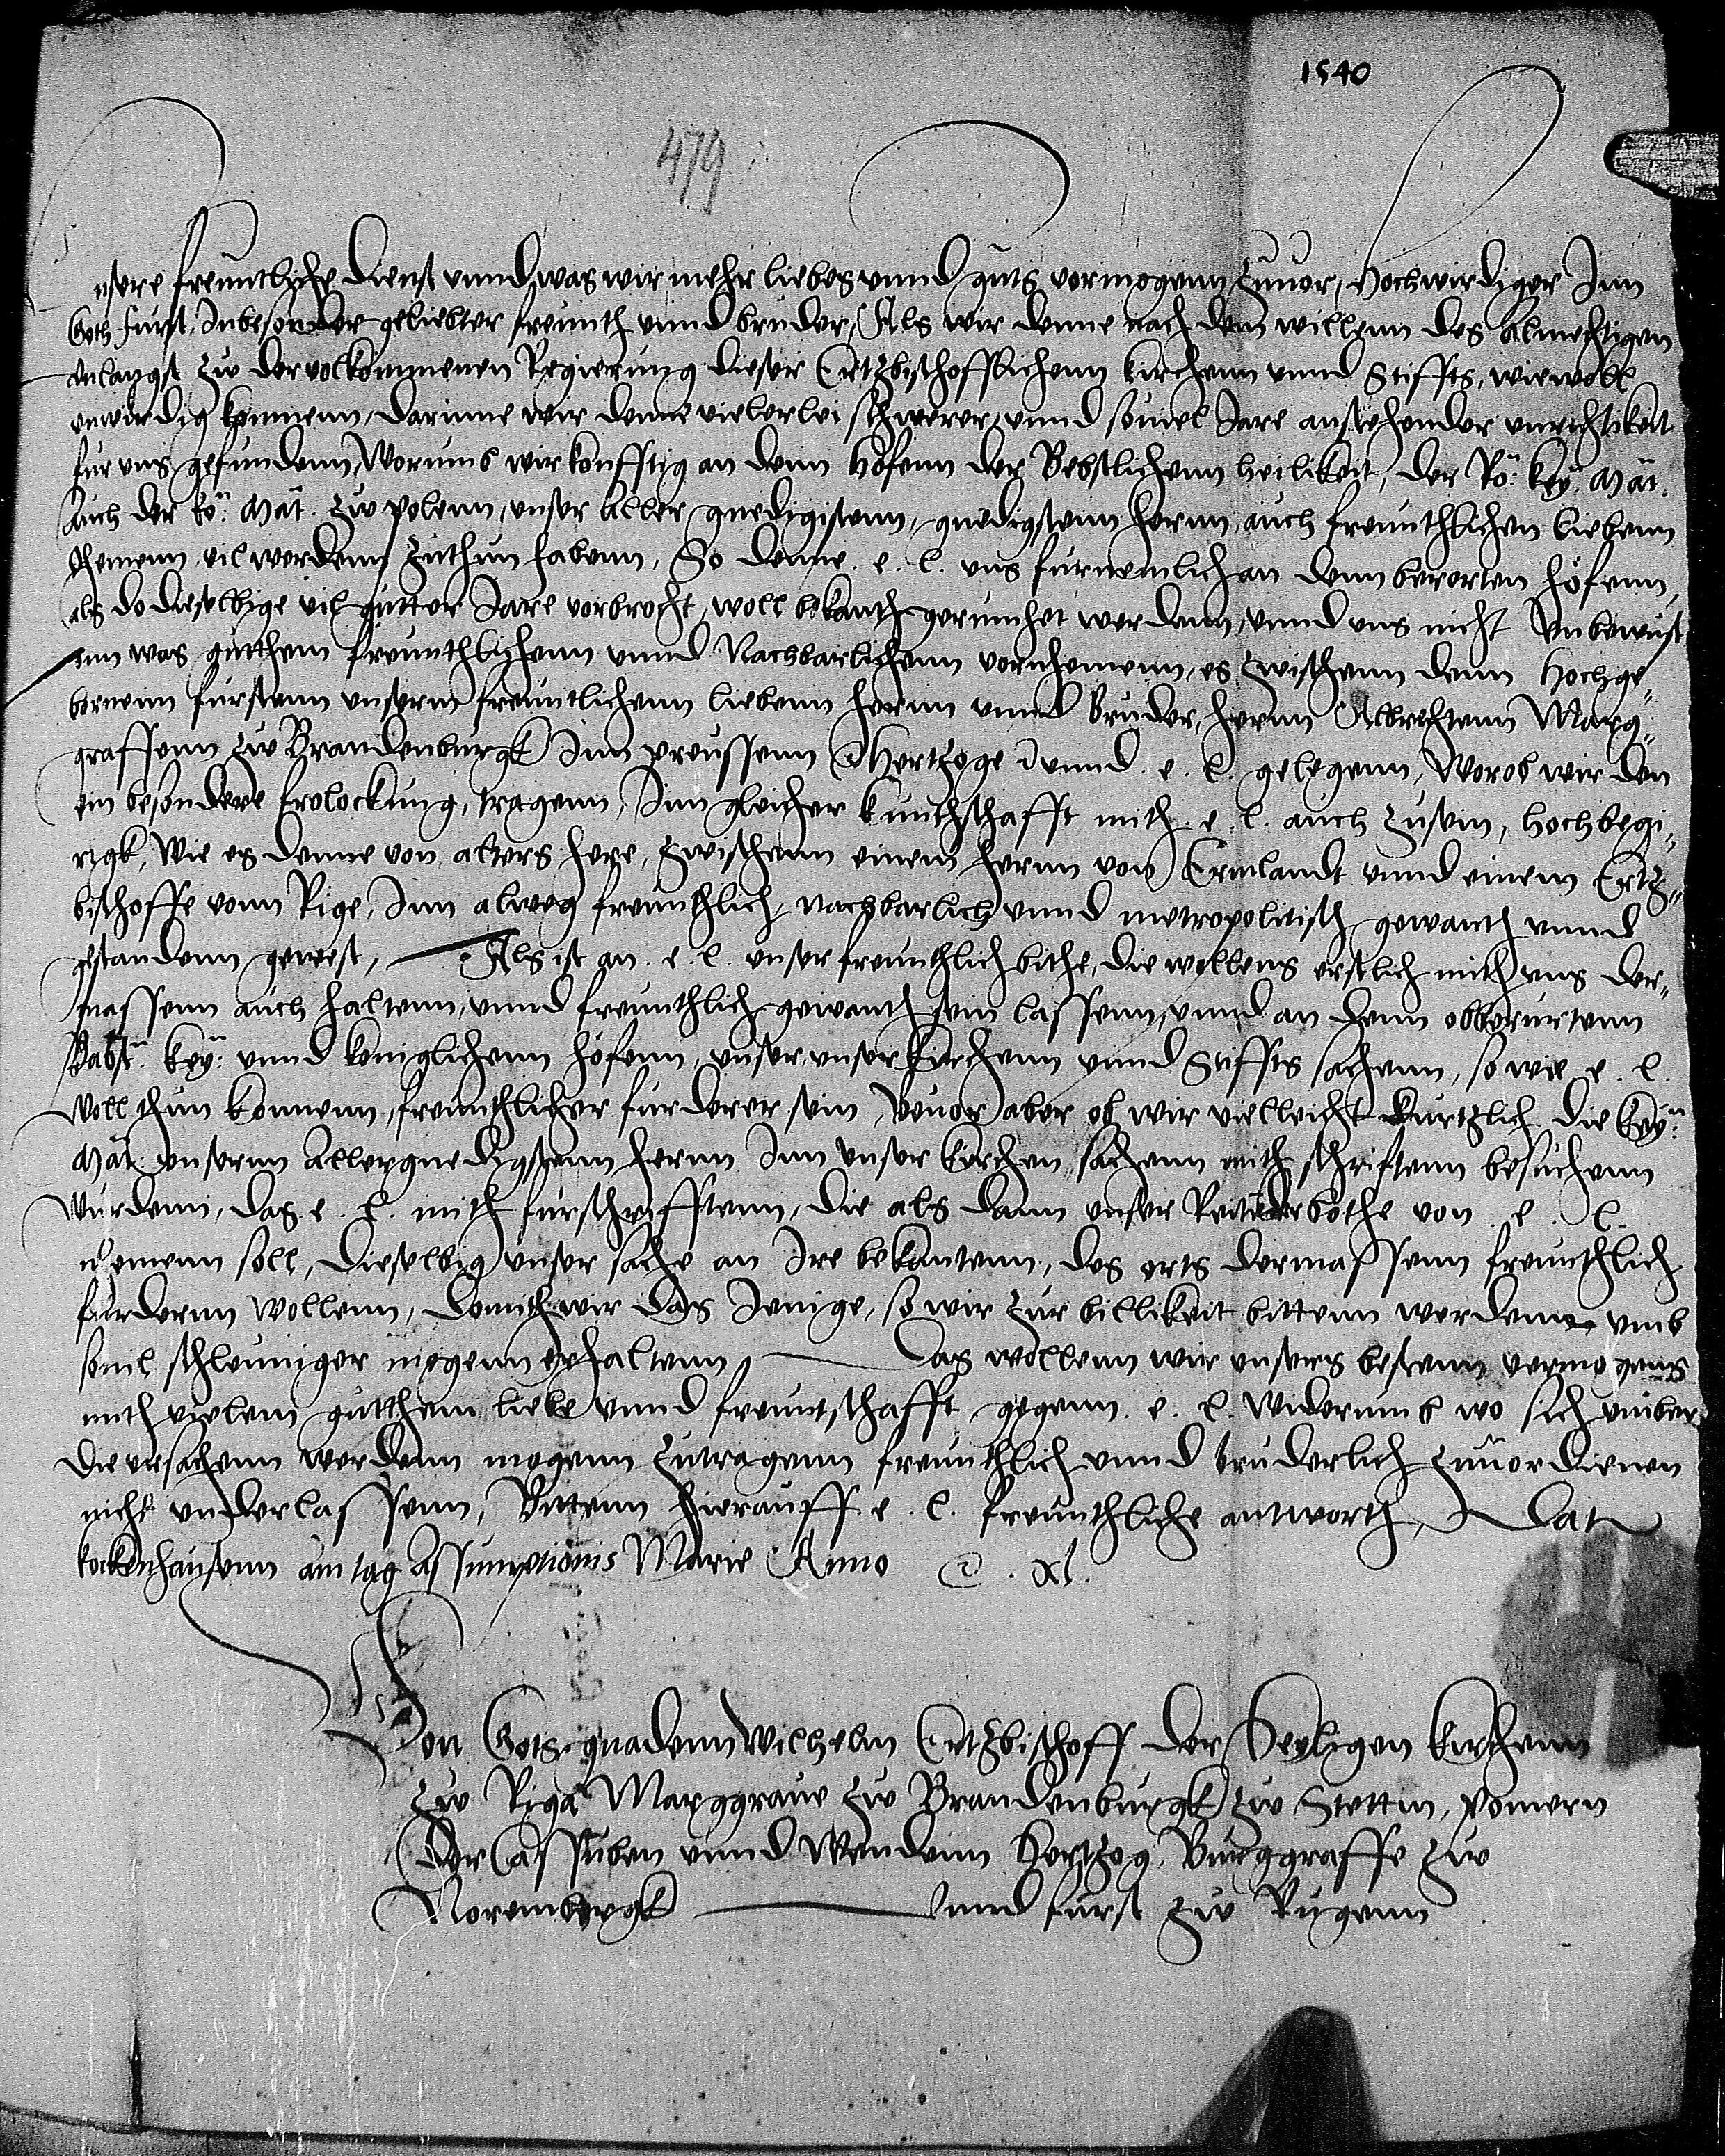 1540
479
Unsere freuntliche dienst vnnd was wir mehr liebes vnnd guts vormogenn zuuor, Hochwirdiger Inn
Goth furst, Inbesonder geliebter freunth vnnd bruder, Als wir denne nach dem willenn des Almechtigen
vnlangst zw der volkommenen Regierung dieser Ertzbischofflichenn kirchenn vnnd Stiffts, wiewoll
vnwirdig kommenn, darinne wir denne vielerlei schwerer, vnnd souiel Jare anstehender vnrichtikeit
fur vns gefundenn, Worumb wir konfftig an denn Hofenn der Bebstlichenn heilikeit, der Rö: key: Mät.
Auch der kö: Mät. zw polenn, vnser aller gnedigistenn, gnedigstenn hernn, auch freunthlichen liebenn
Ohemenn, vil werdenn zuthun habenn, So denne e. l. vns furnemlich an denn berorten höfenn,
als do dieselbige vil gutter Jare vorbrocht, woll bekanth gerumhet werdenn, vnnd vns nicht vnbewust
inn was gutthem freunthlichenn vnnd Nachbarlichenn vornhemenn, es zwischenn denn Hochge„
bornenn furstenn vnserm freuntlichenn liebenn hernn vnnd Bruder, hernn Albrechtenn Marg„
graffenn zw Brandenburgk Inn preussenn Hertzoge vnnd e. l. gelegenn, Worob wir den
ein besondere frolockung, tragenn, Inn gleicher kunthschafft mith e. l. auch zusein, Hochbegi„
rigk, Wie es denne von alters here, zwischenn einem hernn von Ermlandt vnnd einem Ertz„
bischoffe vonn Rige, Inn alweg freunthlich, nachbarlich vnnd metropolitisch gewanth vnnd
gestandenn gewest, Als ist an e. l. vnser freunthlich bithe, die wollens erstlich mith vns der„
massenn auch haltenn, vnnd freunthlich gewanth sein lassenn, vnnd an denn obberurtenn
Babst: key: vnnd koniglichenn höfenn, vnser, vnser kirchenn vnnd Stiffts sachenn, so wie e. l.
woll thun konnenn, freunthlicher furderer sein, Beuor aber ob wir vielleicht kurtzlich die key:
Mät: vnsernn Allergnedigstenn hernn Inn vnser kirchen sachenn mith schriftenn besuchenn
wurdenn, das e. l. mith furschrifftenn, die als dann vnser Reitender bothe von e. l.
nhemenn soll, dieselbig vnser sache an Ire bekantenn, des orts dermassenn freunthlich
furdernn wollenn, domith wir das Jenige, so wir zur billikeit bittenn werdenn, vmb
souil schleuniger mogenn erhaltenn, Das wollenn wir vnsers bestenn vermogens
mith vielem gutthem, liebe vnnd freuntschafft, gegenn e. l. widerumb wo sich vmber
die vrsachenn werdenn mogenn zutragenn freunthlich vnnd bruderlich zuuordienen
nicht vnderlassenn, Bittenn hierauff e. l. freunthliche antworth, Dat
kockenhausenn am tag Assumptionis Marie Anno . xl.
Von Gots gnadenn Wilhelm Ertzbischoff der Heyligen kirchenn
zw Riga Marggraue zw Brandenburgk zw Stettin, pomern
Der Cassuben vnnd Wendenn Hertzog, Burggraffe zw
Norembergk vnnd furst zw Rugenn